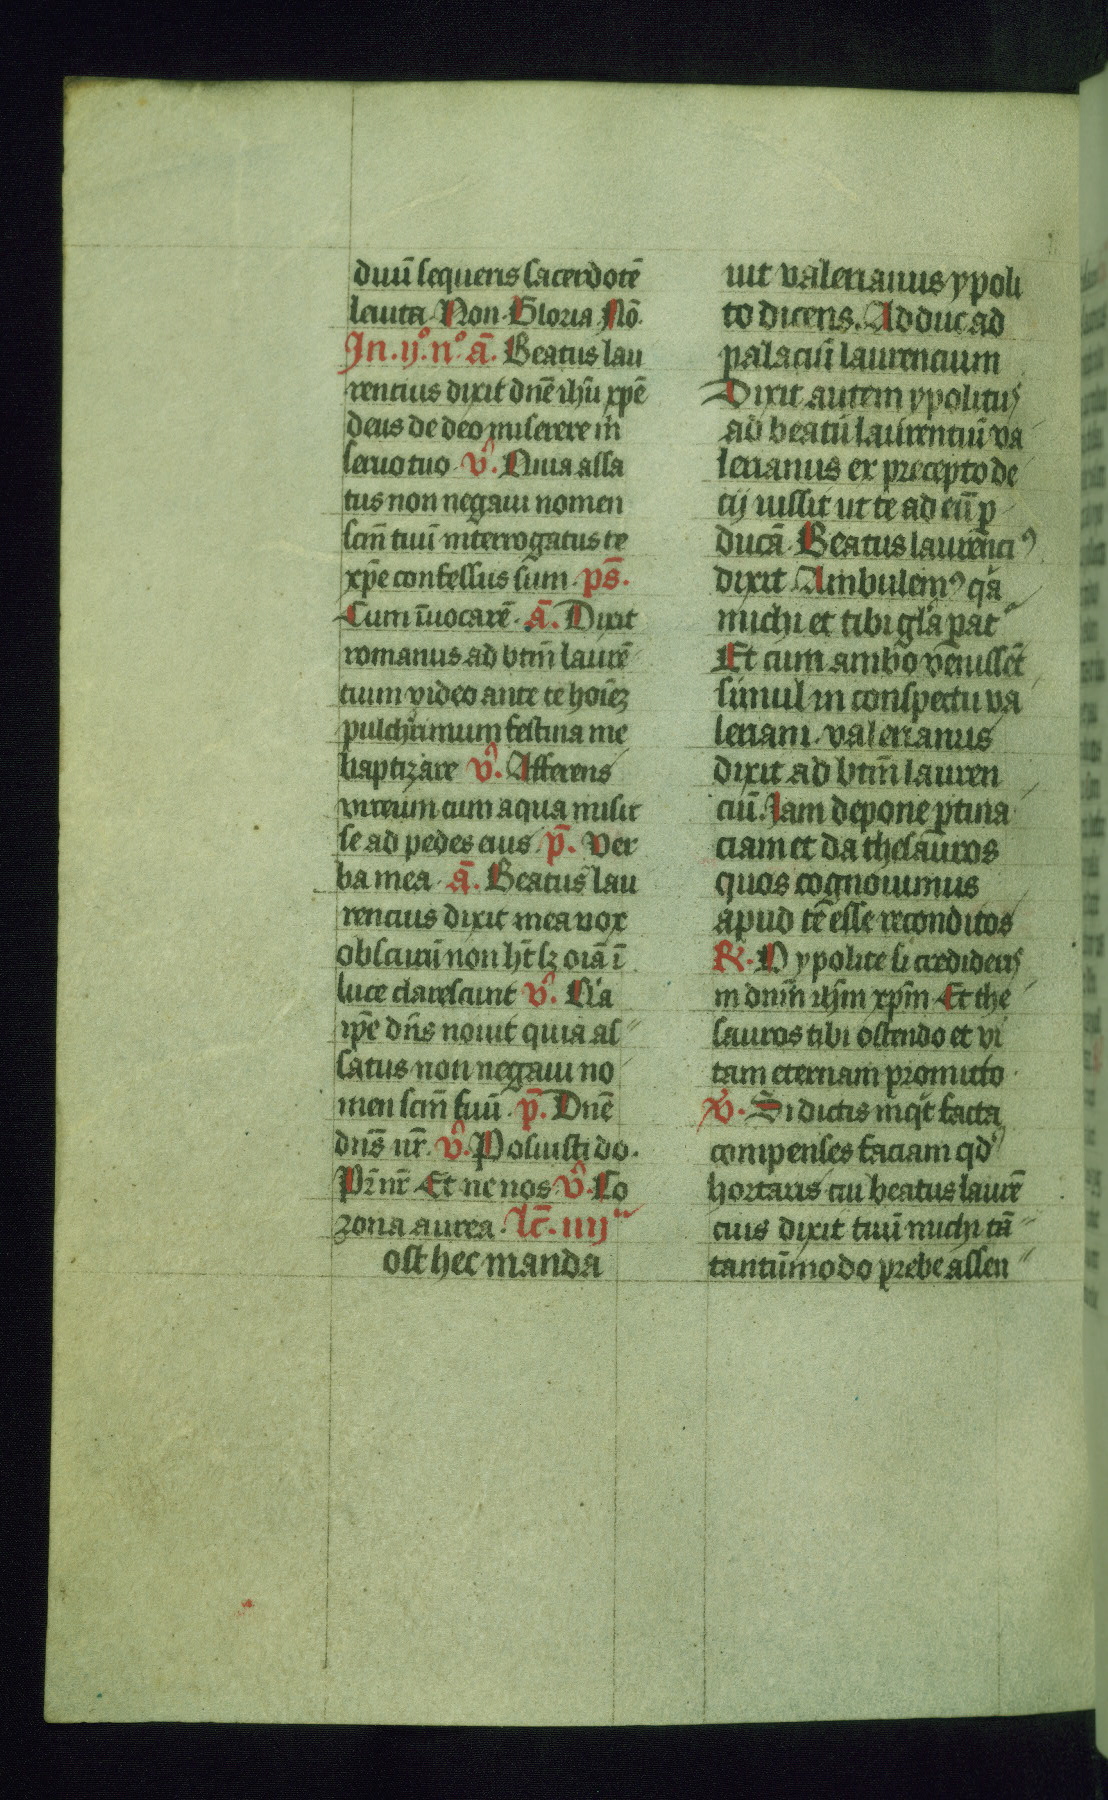 diuū sequeris sacerdotē
leuita. Non. Gloria. Nō.
In .ij°. n°. ā. Beatus lau
rencius dixit dn̄e ih̄u xp̄e
deus de deo miserere m̄
seruo tuo. v̄. Quia assa
tus non negaui nomen
scm̄ tuū interrogatus te
xp̄e confessus sum. ps̄.
Cum īuocarē. ā. Dixit
romanus ad btm̄ laurē
tium video ante te hoīeꝫ
pulcherrimum festina me
baptizare v̄. Afferens
vrceum cum aqua misit
se ad pedes eius. p̄. Ver
ba mea. ā. Beatus lau
rencius dixit mea nox
obscurū non ht̄ sꝫ oīa ī
luce clarescunt v̄. Q'a
ip̄e dn̄s nouit quia as
satus non negaui no
men scm̄ suū. p̄. Dn̄e
dn̄s nr̄. v̄. Posuisti do.
Pr̄ nr̄. Et ne nos. v̄. Co
rona aurea. lc̄. iiijᵃ
ost hec manda
uit valerianus ypoli
to dicens. Adduc ad
palaciū laurencium
Dixit autem ypolitus
ad beatū laurentiū va
lerianus ex precepto de
cij iussit ut te ad eū p
ducā. Beatus laurenciꝰ
dixit. Ambulemꝰ q'a
michi et tibi gl'a pat'
Et cum ambo venissēt
simul in conspectu va
leriani. valerianus
dixit ad btm̄ lauren
ciū. Iam depone ꝑtina
ciam et da thesauros
quos cognouimus
apud te esse reconditos
R. O ypolite si credideris
in dnm̄ ih̄m xp̄m Et the
sauros tibi ostendo et vi
tam eternam promitto.
v̄. Si dictis inqt̄ facta
compenses faciam qd'
hortaris cui beatus laurē
cius dixit tuū michi tā
tantūmodo prebe assen